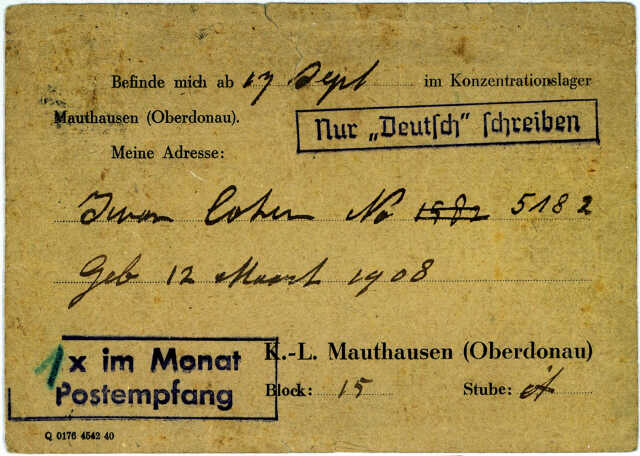 Befinde mich ab 17 Sept im Konzentrationslager
Mauthausen (Oberdonau).
Nur „Deutsch" schreiben
Meine Adresse:
Cohen No 1582 5182
Geb 12 Maart 1908
1x im Monat
Postempfang
K.-L. Mauthausen (Oberdonau)
Block: 15 Stube: A
Q 0176 4542 40